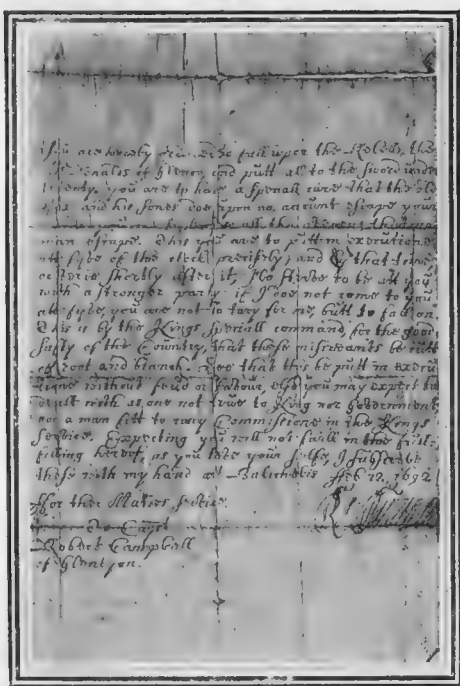 You are hereby ordered to fall upon the Rebells, the
McDonalds of Glenco, and putt all to the sword under
seventy. you are to have a speciall care that the old
fox and his sones doe upon no account escape your
all the avenues that no
man escape. This you are to putt in executione
att fyve of the clock precisely; and by that time
or verie shortly after it, I'le strive to be att you
with a stronger party: if I doe not come to you
att fyve, you are not to tary for me, butt to fall on.
This is by the Kings speciall command, for the good
safty of the Country, that these miscreants be cutt
off root and branch. See that this be putt in execu
tione without feud or favour, else you may expect to
dealt with as one not true to King nor Government
nor a man fitt to cary Commissione in the Kings
service. Expecting you will not faill in the full
filling hereof, as you love your selfe, I subscribe
these with my hand att Balicholis Feb: 12, 1692
For their Maties service
To Capt
Robert Campbell
of Glenlyon.